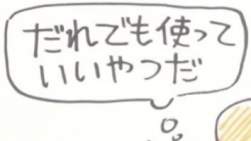 だれでも使って
いいやつだ